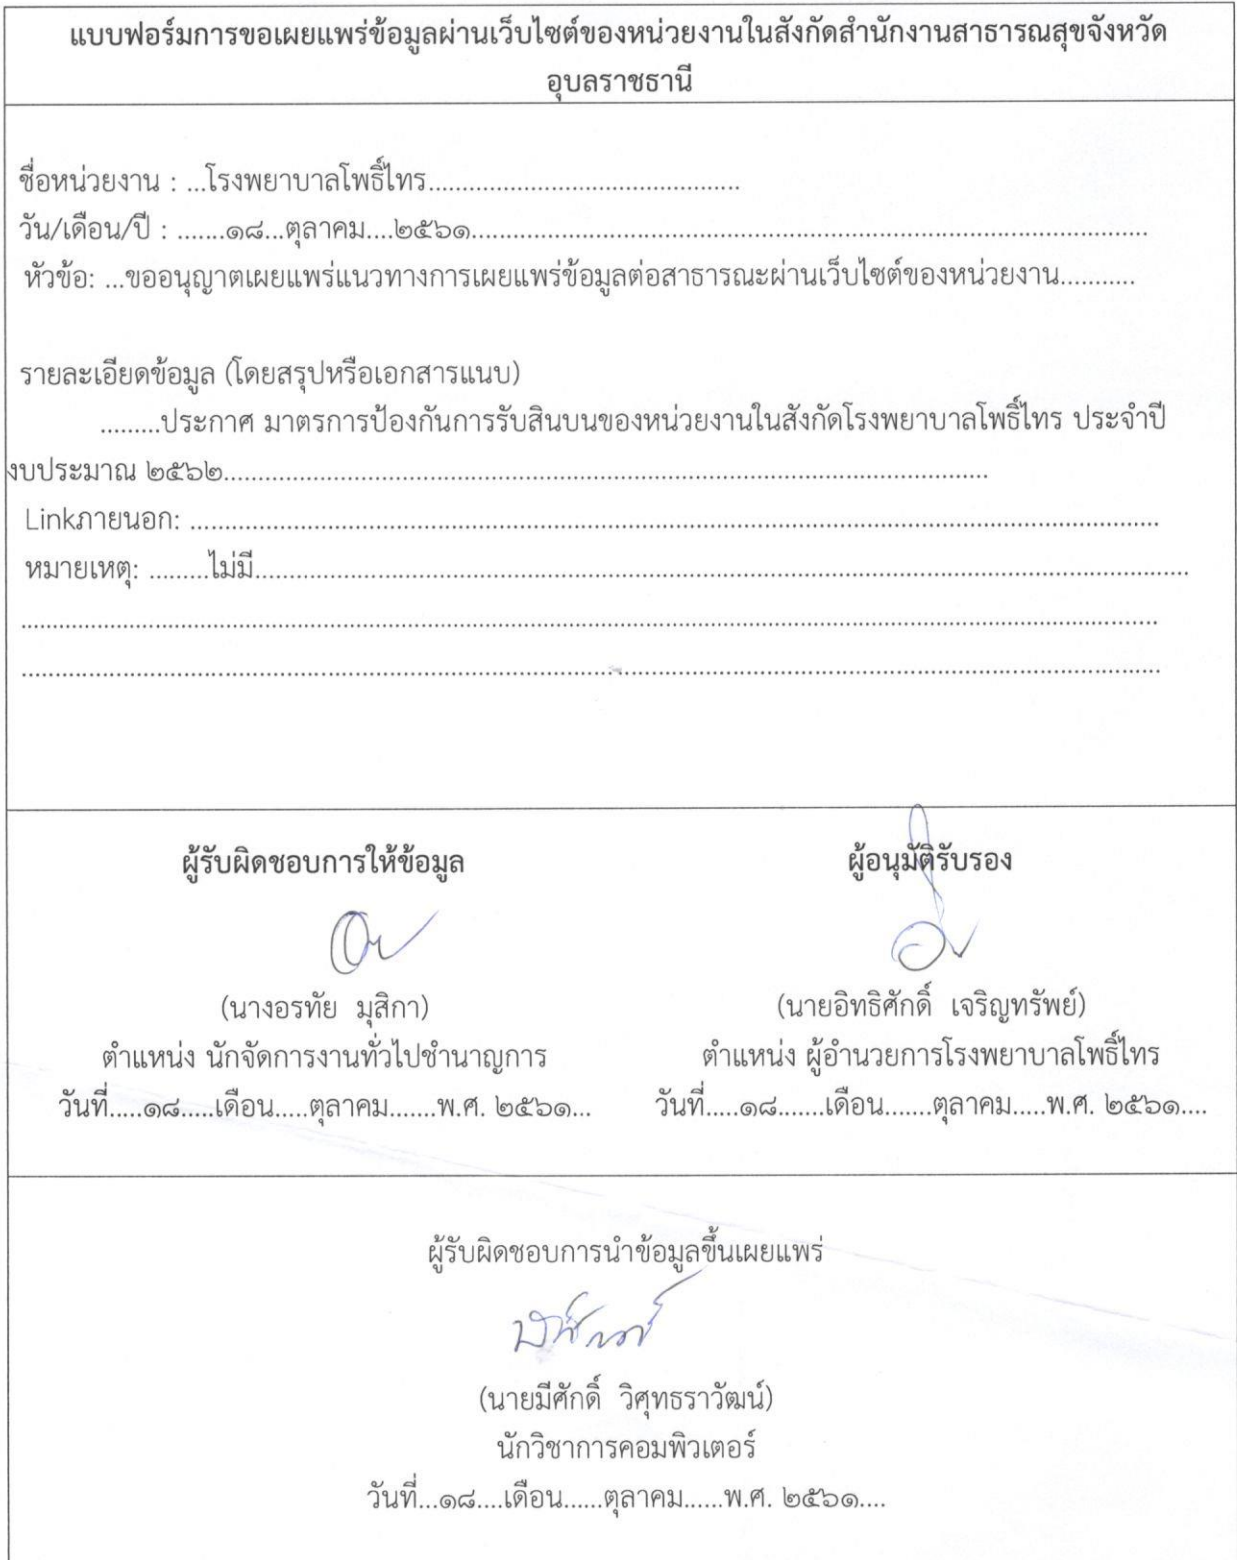 แบบฟอร์มการขอเผยแพร่ข้อมูลผ่านเว็บไซต์ของหน่วยงานในสังกัดสำนักงานสาธารณสุขจังหวัด
อุบลราชธานี
ชื่อหน่วยงาน : ...โรงพยาบาลโพธิ์ไทร..............................................
วัน/เดือน/ปี : .......๑๘...ตุลาคม....๒๕๖๑....................................................................................................
หัวข้อ: ...ขออนุญาตเผยแพร่แนวทางการเผยแพร่ข้อมูลต่อสาธารณะผ่านเว็บไซต์ของหน่วยงาน...........
รายละเอียดข้อมูล (โดยสรุปหรือเอกสารแนบ)
.........ประกาศ มาตรการป้องกันการรับสินบนของหน่วยงานในสังกัดโรงพยาบาลโพธิ์ไทร ประจำปี
งบประมาณ ๒๕๖๒.................................................................................................................
Linkภายนอก: ...............................................................................................................................................
หมายเหตุ: .........ไม่มี..........................................................................................................................................
........................................................................................................................................................................
........................................................................................................................................................................
ผู้รับผิดชอบการให้ข้อมูล
(นางอรทัย มุสิกา)
ตำแหน่ง นักจัดการงานทั่วไปชำนาญการ
วันที่.....๑๘.....เดือน.....ตุลาคม.......พ.ศ. ๒๕๖๑...
ผู้อนุมัติรับรอง
(นายอิทธิศักดิ์ เจริญทรัพย์)
ตำแหน่ง ผู้อำนวยการโรงพยาบาลโพธิ์ไทร
วันที่.....๑๘.......เดือน.......ตุลาคม.....พ.ศ. ๒๕๖๑....
ผู้รับผิดชอบการนำข้อมูลขึ้นเผยแพร่
(นายมีศักดิ์ วิศุทธราวัฒน์)
นักวิชาการคอมพิวเตอร์
วันที่...๑๘....เดือน......ตุลาคม......พ.ศ. ๒๕๖๑....